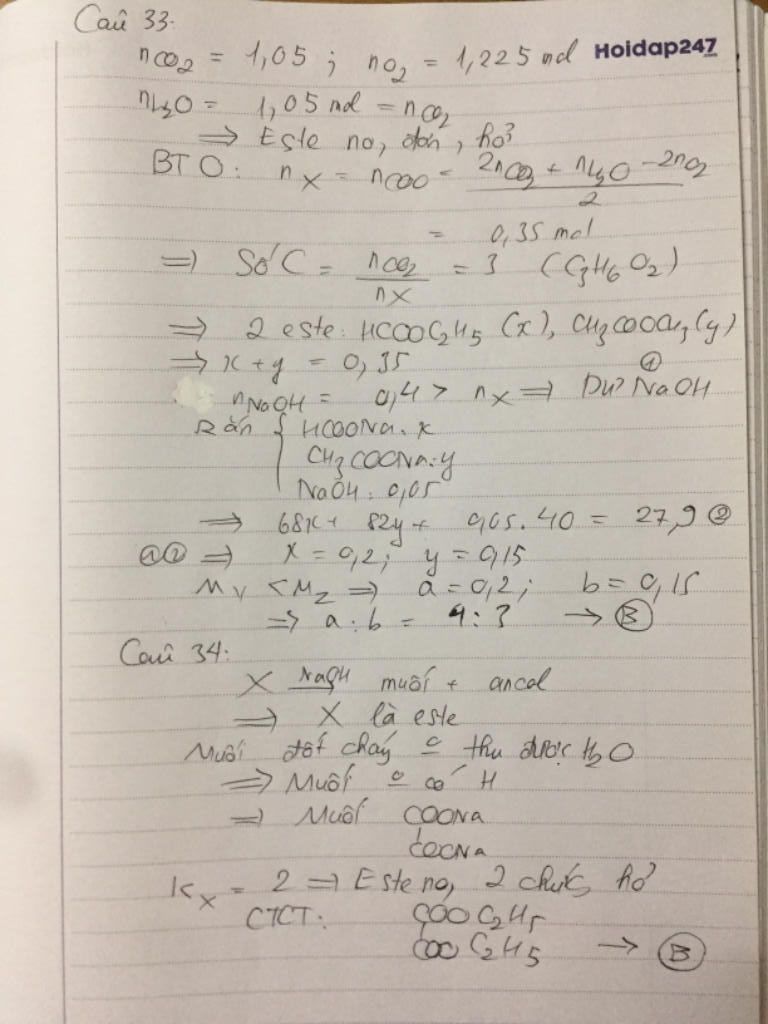 Câu 33.
nCO2 = 1,05 ; nO2 = 1,225 mol
Hoidap247
nH2O = 1,05 mol = nCO2
=> Este no, đơn, hở
BTO: nX = nCOO = (2nCO2 + nH2O - 2nO2)/2
= 0,35 mol
=> Số C = nCO2/nX = 3 (C3H6O2)
=> 2 este: HCOOC2H5 (x), CH3COOCH3 (y)
=> x + y = 0,35 ①
nNaOH = 0,4 > nX => Dư NaOH
Rắn { HCOONa: x
CH3COONa: y
NaOH: 0,05
=> 68x + 82y + 0,05.40 = 27,9 ②
①② => x = 0,2; y = 0,15
MY < MZ => a = 0,2; b = 0,15
=> a : b = 4 : 3 → Ⓑ
Câu 34:
X NaOH muối + ancol
=> X là este
Muối đốt cháy o thu được H2O
=> Muối o có H
=> Muối COONa
COONa
kX = 2 => Este no, 2 chức, hở
CTCT: COOC2H5
COOC2H5 → Ⓑ